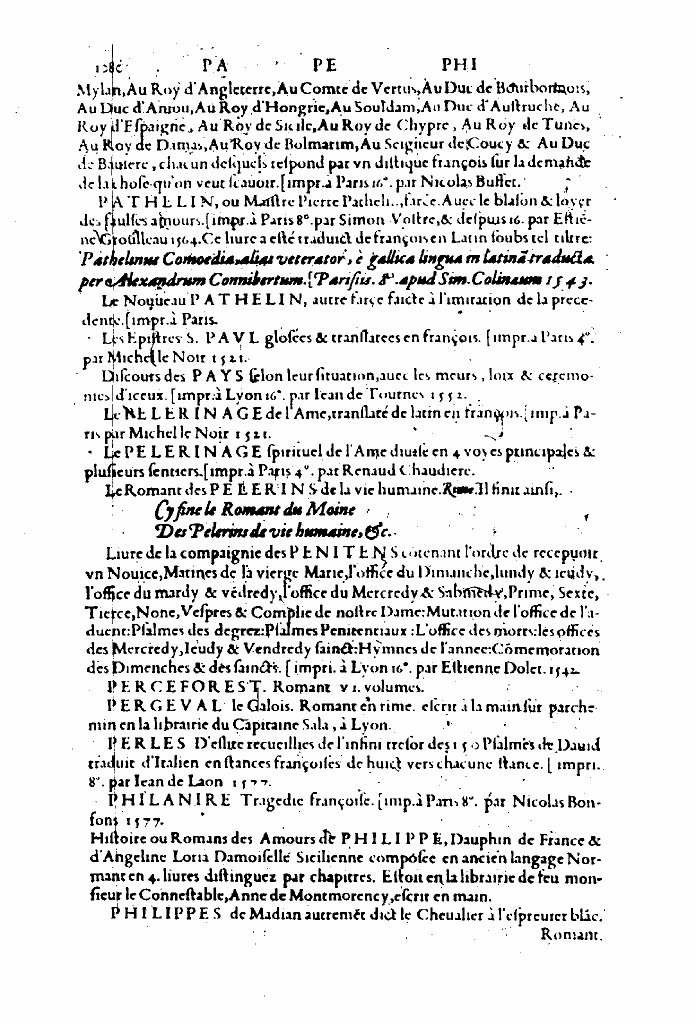 PA PE PHI
Mylan,Au Roy d'Angleterre,Au Comte de Vertus,Au Duc de Bourbonnois,
Au Duc d'Aniou,Au Roy d'Hongrie,Au Souldam,Au Duc d'Auſtruche, Au
Roy d'Eſpaigne, Au Roy de Sicile,Au Roy de Chypre, Au Roy de Tunes,
Au Roy de Damas,Au Roy de Bolmarim,Au Seigneur de Coucy & Au Duc
de Bauiere, chacun deſquels reſpond par vn diſtique françois ſur la demande
de la choſe qu'on veut ſcauoir.[impr.à Paris 16°. par Nicolas Buffet.
PATHELIN, ou Maiſtre Pierre Patheli.,farce.Auec le blaſon & loyer
des faulſes amours.[impr.à Paris 8°.par Simon Voſtre,& deſpuis 16. par Eſtié-
ne Groulleau 1564.Ce liure a eſté traduict de françois en Latin ſoubs tel tiltre:
Pathelinus Comoedia,alias veterator, è gallica lingua in latinā traducta
per Alexandrum Connibertum.[Pariſiis. 8°. apud Sim.Colinaum 1543.
Le Nouueau PATHELIN, autre farçe faicte à l'imitation de la prece-
dente.[impr.à Paris.
Les Epiſtres S. PAVL gloſées & tranſlatees en françois. [impr.a Paris 4°.
par Michel le Noir 1521.
Diſcours des PAYS ſelon leur ſituation,auec les meurs, loix & ceremo-
nies d'iceux.[impr.à Lyon 16°. par Iean de Tournes 1552.
Le PELERINAGE de l'Ame,tranſlaté de latin en françois.[imp.à Pa-
ris par Michel le Noir 1521.
Le PELERINAGE ſpirituel de l'Ame diuiſe en 4 voyes principales &
pluſieurs ſentiers.[impr.à Paris 4°. par Renaud Chaudiere.
Le Romant des PELERINS de la vie humaine. Rime.Il finit ainſi,
Cy fine le Romant du Moine
Des Pelerins de vie humaine,&c.
Liure de la compaignie des PENITENS cōtenant l'ordre de recepuoir
vn Nouice,Matines de la vierge Marie,l'office du Dimanche,lundy & ieudy,
l'office du mardy & védredy,l'office du Mercredy & Sabmedy,Prime, Sexte,
Tierce,None,Veſpres & Complie de noſtre Dame:Mutation de l'office de l'a-
duent:Pſalmes des degrez:Pſalmes Penitentiaux:L'office des morts:les offices
des Mercredy,Ieudy & Vendredy ſainct:Hymnes de l'annee:Cōmemoration
des Dimenches & des ſaincts. [impri. à Lyon 16°. par Eſtienne Dolet.1542.
PERCEFOREST. Romant vi. volumes.
PERGEVAL le Galois. Romant en rime. eſcrit a la main ſur parche-
min en la librairie du Capitaine Sala, à Lyon.
PERLES D'eſlite recueillies de l'infini treſor des 150 Pſalmes de Dauid
traduit d'Italien en ſtances françoiſes de huict vers chacune ſtance. [impri.
8°. par Iean de Laon 1577.
PHILANIRE Tragedie françoiſe.[imp.à Paris 8°. par Nicolas Bon-
fons 1577.
Hiſtoire ou Romans des Amours de PHILIPPE, Dauphin de France &
d'Angeline Loria Damoiſelle Sicilienne compoſee en ancien langage Nor-
mant en 4. liures diſtinguez par chapitres. Eſtoit en la librairie de feu mon-
ſieur le Conneſtable,Anne de Montmorency,eſcrit en main.
PHILIPPES de Madian autremēt dict le Cheualier à l'eſpreuier blāc.
Romant.